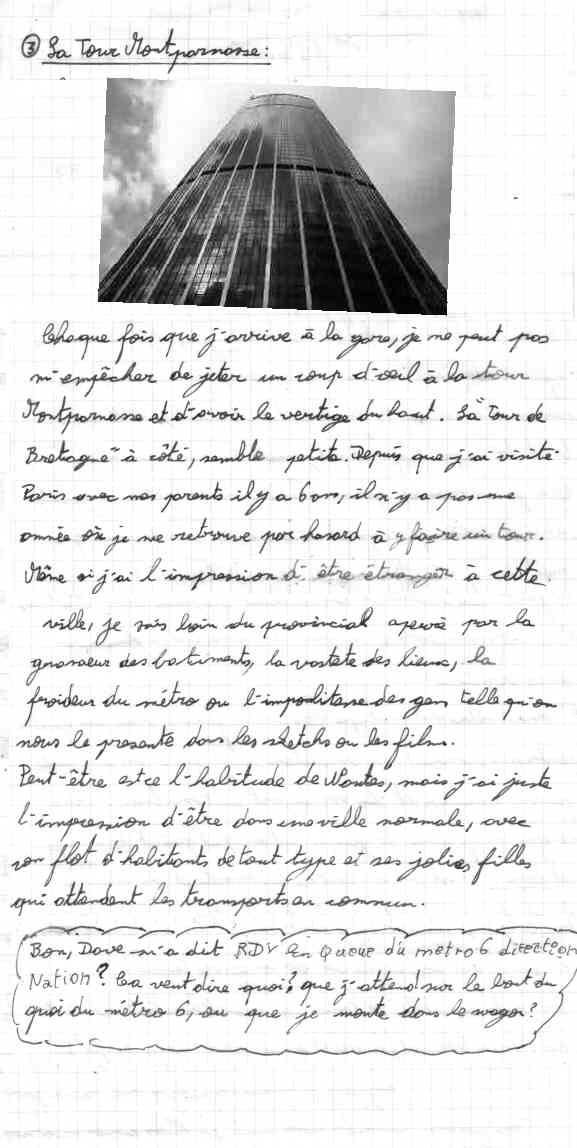 ③ La Tour Montparnasse :
Chaque fois que j'arrive à la gare, je ne peut pas
m'empêcher de jeter un coup d'oeil à la tour
Montparnasse et d'avoir le vertige du haut. La "Tour de
Bretagne" à côté, semble petite. Depuis que j'ai visité
Paris avec mes parents il y a 6 ans, il n'y a pas une
année où je me retrouve par hasard à y faire un tour.
Même si j'ai l'impression d'être étranger à cette
ville, je suis loin du provincial apeuré par la
grandeur des batiments, la vastete des lieux, la
froideur du métro ou l'impolitesse des gens telle qu'on
nous le presente dans les sketchs ou les films.
Peut-être est ce l'habitude de Nantes, mais j'ai juste
l'impression d'être dans une ville normale, avec
son flot d'habitants de tout type et ses jolies filles
qui attendent les transports en commun.
Bon, Dave m'a dit RDV en queue du metro 6 direction
Nation ? Ca veut dire quoi ? que j'attend sur le bout du
quai du métro 6, ou que je monte dans le wagon ?